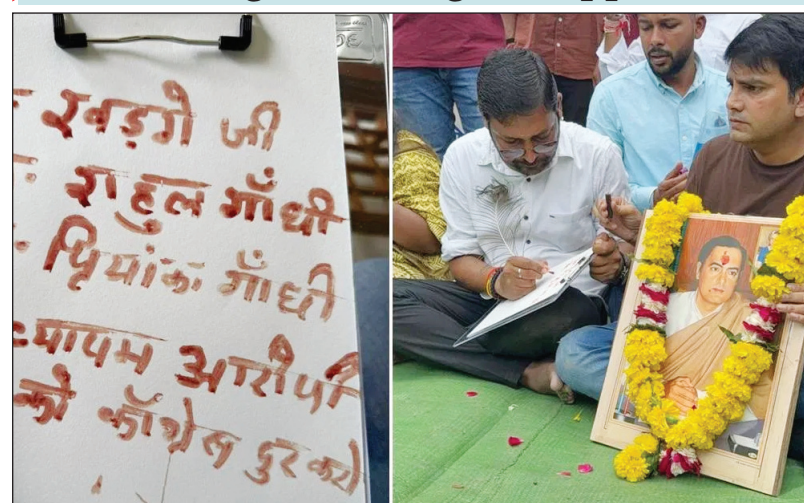 खड़गे जी
राहुल गाँधी
प्रियांका गाँधी
व्यापम आरोपी
को काँग्रेस दुर करो